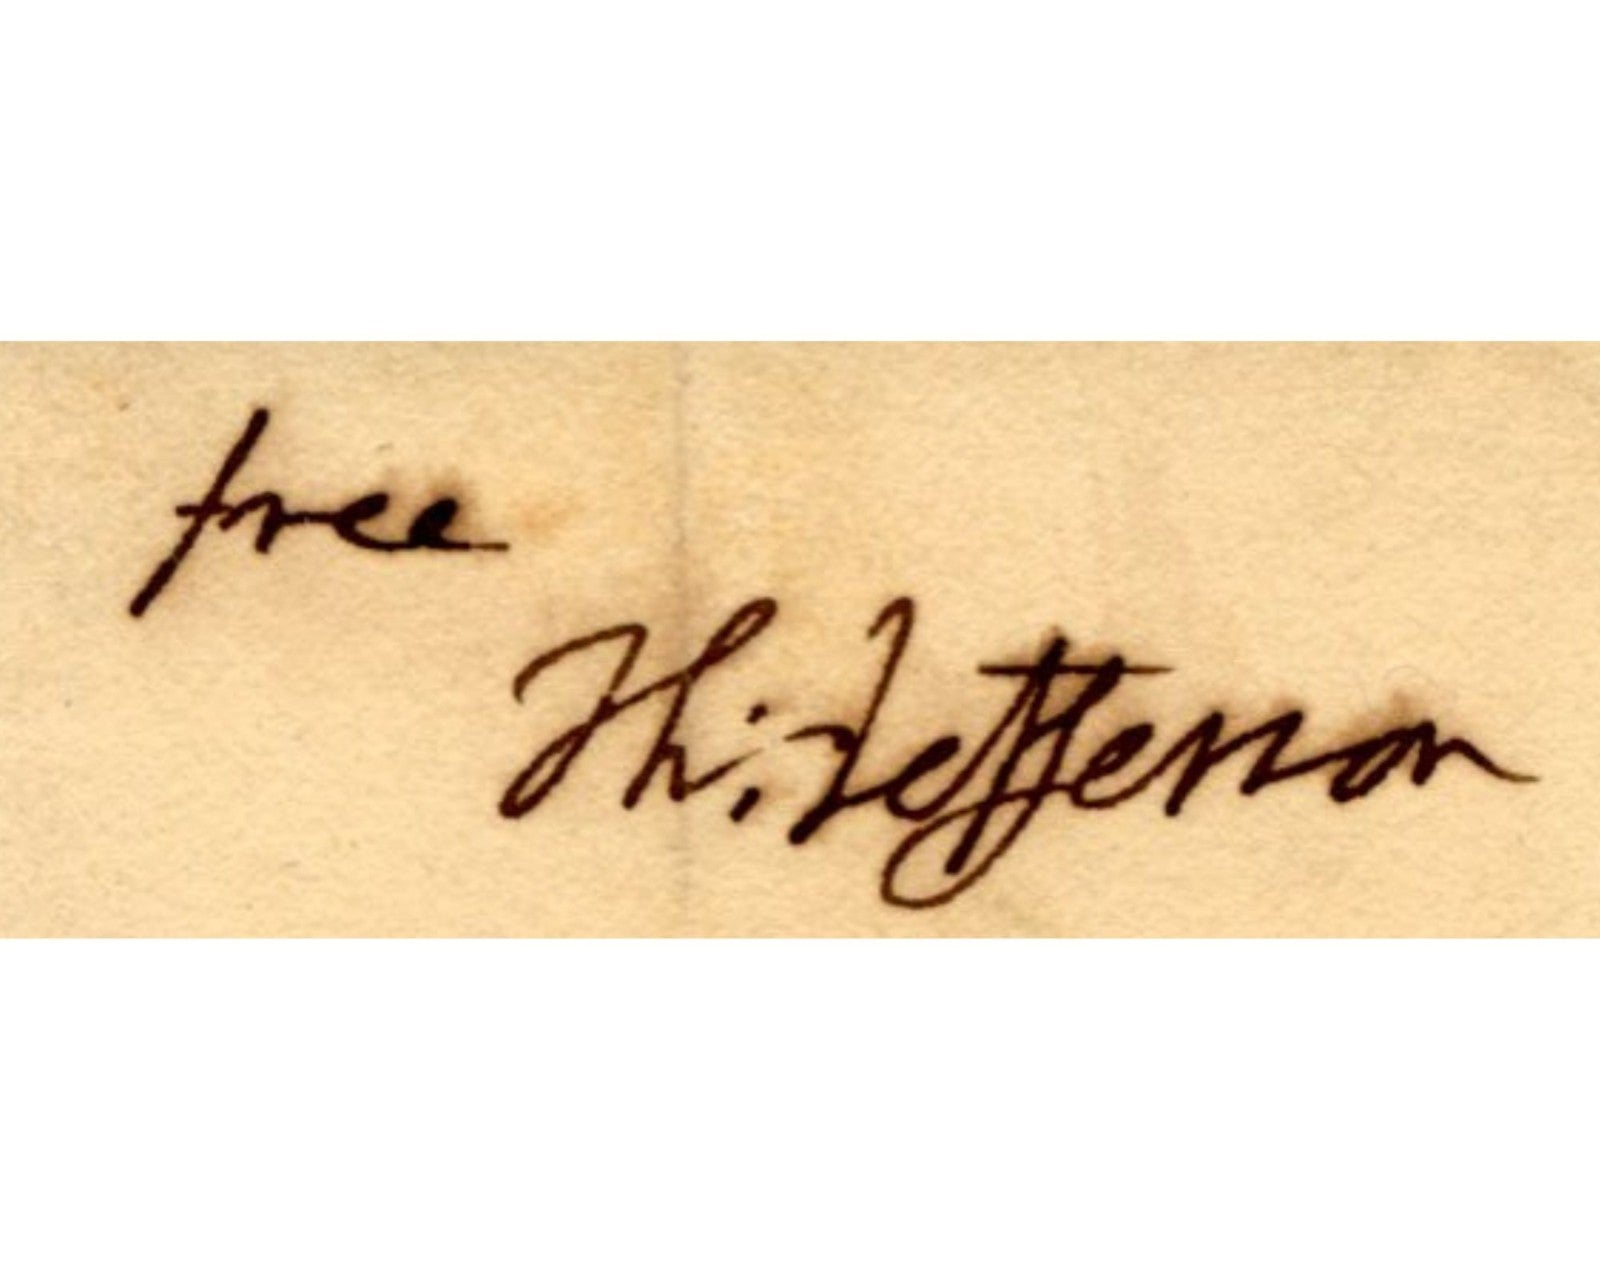 free
Th: Jefferson